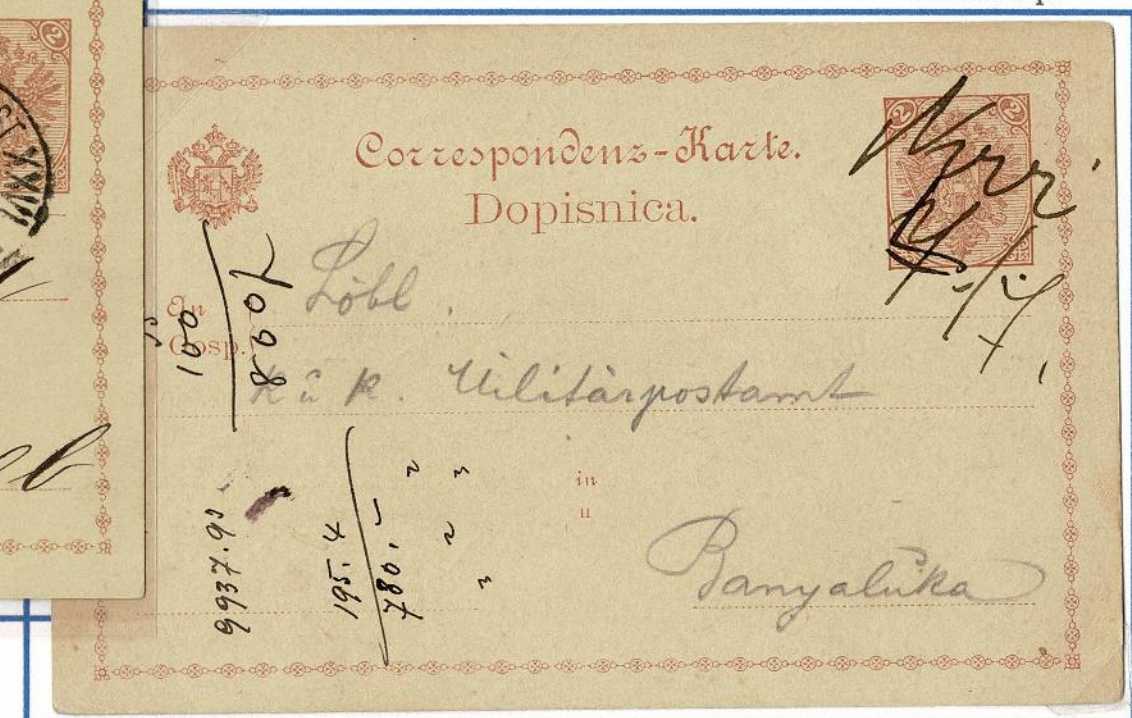 2
ST. XXVI
Correspondenz-Karte.
Dopisnica.
2 2
An
Gosp.
Löbl.
K u K. Militärpostamt
in
u
Banyaluka
100
800
9937.93
195.4
780.-
2
3
2
3